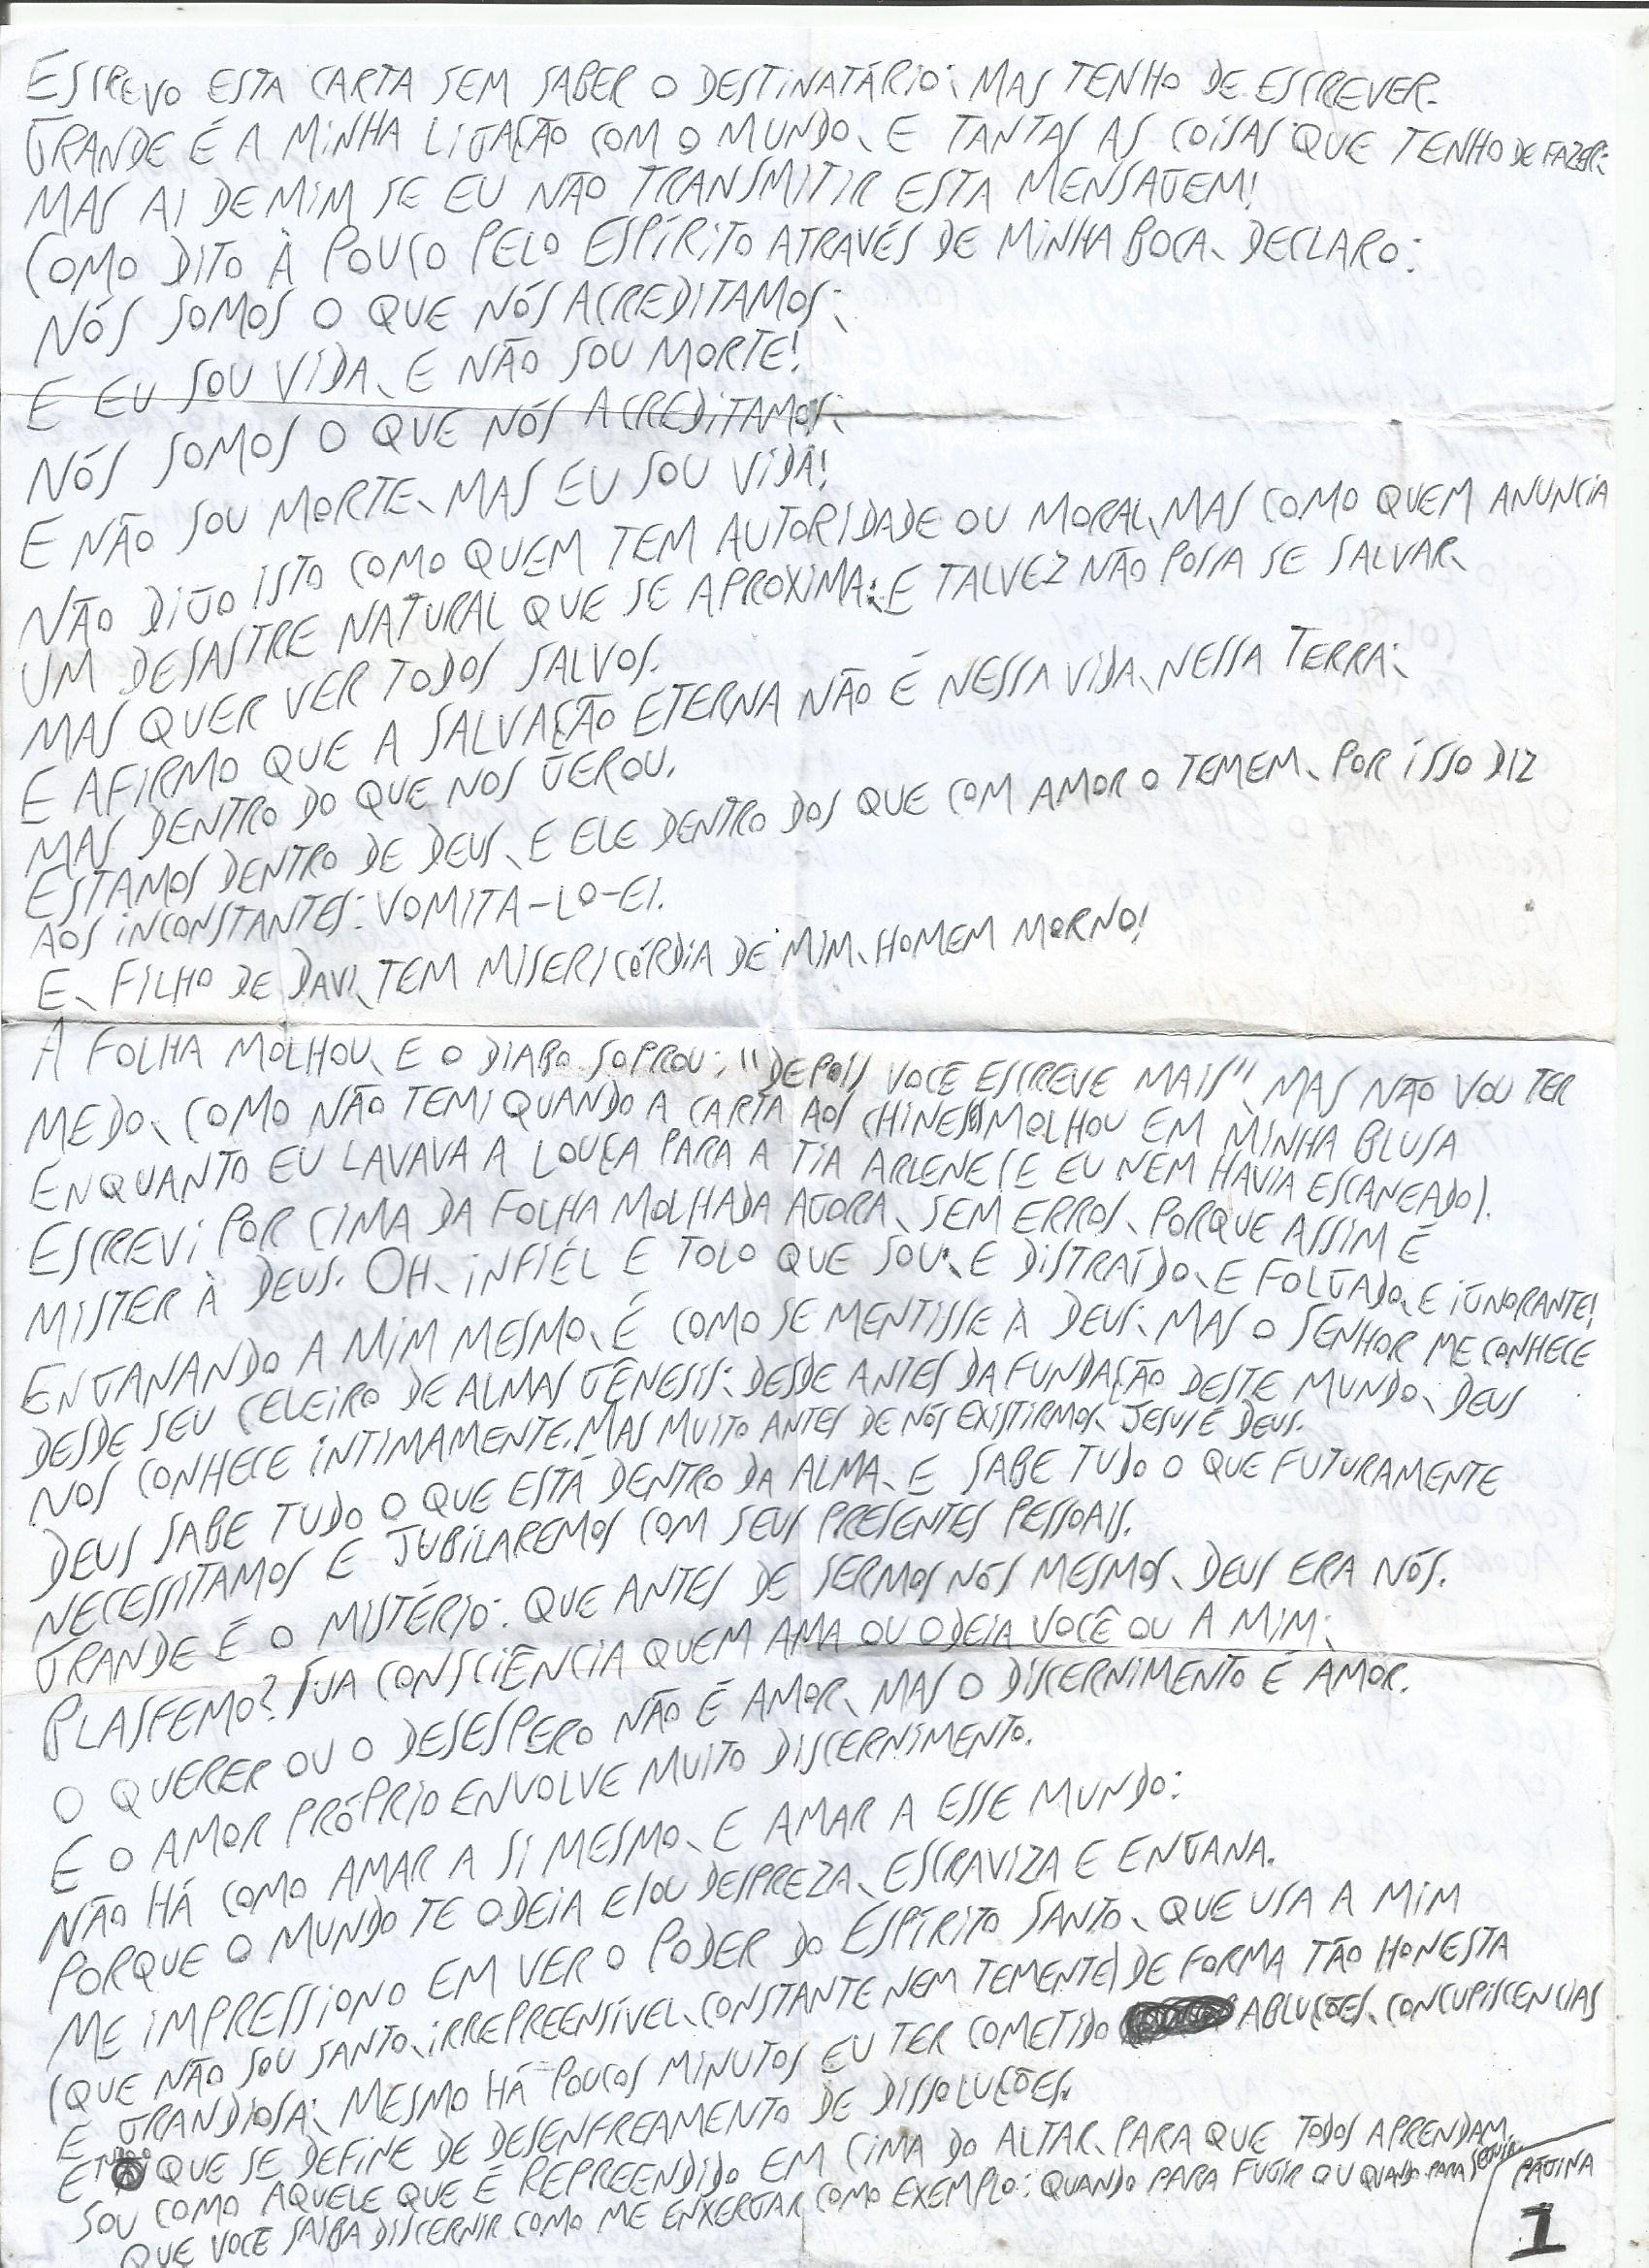 ESCREVO ESTA CARTA SEM SABER O DESTINATÁRIO; MAS TENHO DE ESCREVER.
GRANDE É A MINHA LIGAÇÃO COM O MUNDO, E TANTAS AS COISAS QUE TENHO DE FAZER;
MAS AI DE MIM SE EU NÃO TRANSMITIR ESTA MENSAGEM!
COMO DITO À POUCO PELO ESPÍRITO ATRAVÉS DE MINHA BOCA, DECLARO:
NÓS SOMOS O QUE NÓS ACREDITAMOS;
E EU SOU VIDA, E NÃO SOU MORTE!
NÓS SOMOS O QUE NÓS ACREDITAMOS;
E NÃO SOU MORTE, MAS EU SOU VIDA!
NÃO DIGO ISTO COMO QUEM TEM AUTORIDADE OU MORAL, MAS COMO QUEM ANUNCIA
UM DESASTRE NATURAL QUE SE APROXIMA; E TALVEZ NÃO POSSA SE SALVAR,
MAS QUER VER TODOS SALVOS.
E AFIRMO QUE A SALVAÇÃO ETERNA NÃO É NESSA VIDA, NESSA TERRA;
MAS DENTRO DO QUE NOS GEROU.
ESTAMOS DENTRO DE DEUS, E ELE DENTRO DOS QUE COM AMOR O TEMEM, POR ISSO DIZ
AOS INCONSTANTES: VOMITA-LO-EI.
E, FILHO DE DAVI, TEM MISERICÓRDIA DE MIM, HOMEM MORNO!
A FOLHA MOLHOU, E O DIABO SOPROU: "DEPOIS VOCÊ ESCREVE MAIS", MAS NÃO VOU TER
MEDO, COMO NÃO TEMI QUANDO A CARTA AOS CHINESES MOLHOU EM MINHA BLUSA
ENQUANTO EU LAVAVA A LOUÇA PARA A TIA ARLENE (E EU NEM HAVIA ESCANEADO).
ESCREVI POR CIMA DA FOLHA MOLHADA AGORA, SEM ERROS, PORQUE ASSIM É
MISTER À DEUS. OH, INFIÉL E TOLO QUE SOU, E DISTRAÍDO, E FOLGADO, E IGNORANTE!
ENGANANDO A MIM MESMO, É COMO SE MENTISSE À DEUS; MAS O SENHOR ME CONHECE
DESDE SEU CELEIRO DE ALMAS GÊNESIS; DESDE ANTES DA FUNDAÇÃO DESTE MUNDO, DEUS
NOS CONHECE INTIMAMENTE. MAS MUITO ANTES DE NÓS EXISTIRMOS, JESUS É DEUS.
DEUS SABE TUDO O QUE ESTÁ DENTRO DA ALMA, E SABE TUDO O QUE FUTURAMENTE
NECESSITAMOS E JUBILAREMOS COM SEUS PRESENTES PESSOAIS.
GRANDE É O MISTÉRIO: QUE ANTES DE SERMOS NÓS MESMOS, DEUS ERA NÓS.
BLASFEMO? SUA CONSCIÊNCIA QUEM AMA OU ODEIA VOCÊ OU A MIM;
O QUERER OU O DESESPERO NÃO É AMOR, MAS O DISCERNIMENTO É AMOR.
E O AMOR PRÓPRIO ENVOLVE MUITO DISCERNIMENTO.
NÃO HÁ COMO AMAR A SI MESMO, E AMAR A ESSE MUNDO;
PORQUE O MUNDO TE ODEIA E/OU DESPREZA, ESCRAVIZA E ENGANA.
ME IMPRESSIONO EM VER O PODER DO ESPÍRITO SANTO, QUE USA A MIM
(QUE NÃO SOU SANTO, IRREPREENSÍVEL, CONSTANTE NEM TEMENTE) DE FORMA TÃO HONESTA
E GRANDIOSA; MESMO HÁ POUCOS MINUTOS EU TER COMETIDO ABLUÇÕES, CONCUPISCENCIAS
E TUDO QUE SE DEFINE DE DESENFREAMENTO DE DISSOLUÇÕES.
SOU COMO AQUELE QUE É REPREENDIDO EM CIMA DO ALTAR, PARA QUE TODOS APRENDAM,
QUE VOCÊ SAIBA DISCERNIR COMO ME ENXERGAR COMO EXEMPLO: QUANDO PARA FUGIR OU QUANDO PARA SEGUIR.
PÁGINA
1